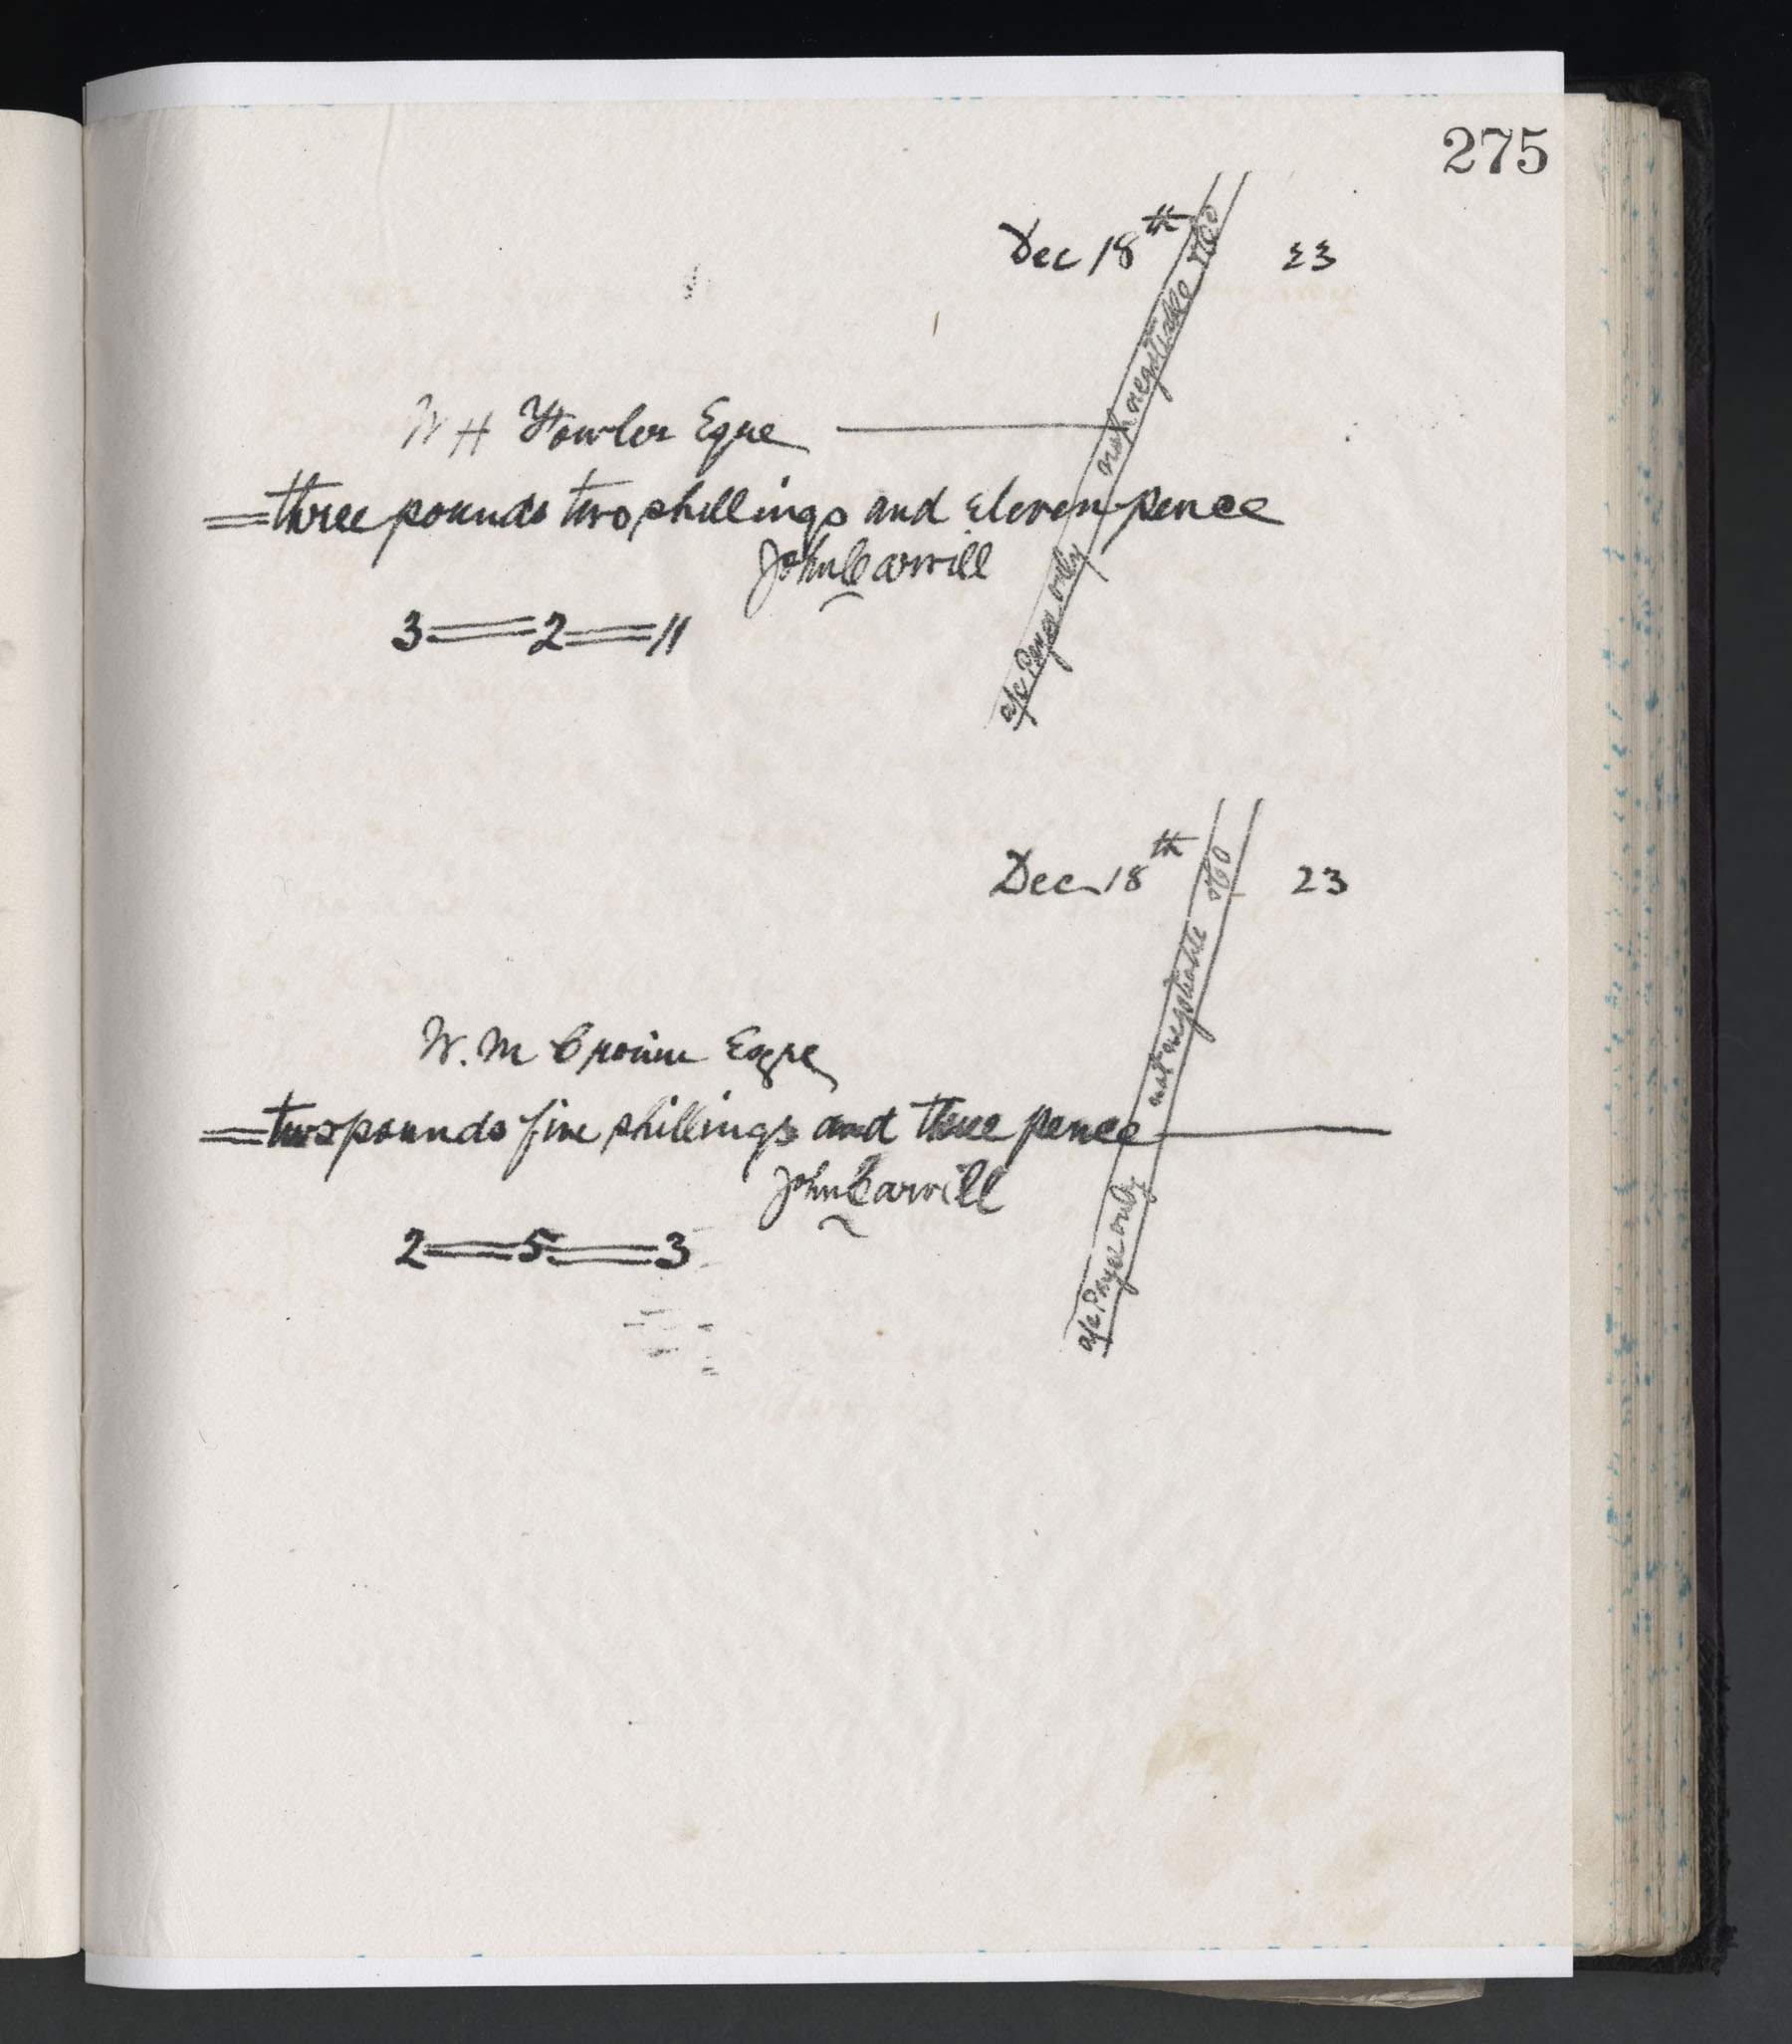 275
Dec 18th 23
W H Fowler Eqre
three pounds two shillings and eleven pence
John Carvill
3 = 2 = 11
a/c Payee only not negotiable & Co
Dec 18th 23
W. M Esqre
two pounds five shillings and three pence
John Carvill
2 = 5 = 3
a/c Payee only not negotiable & Co